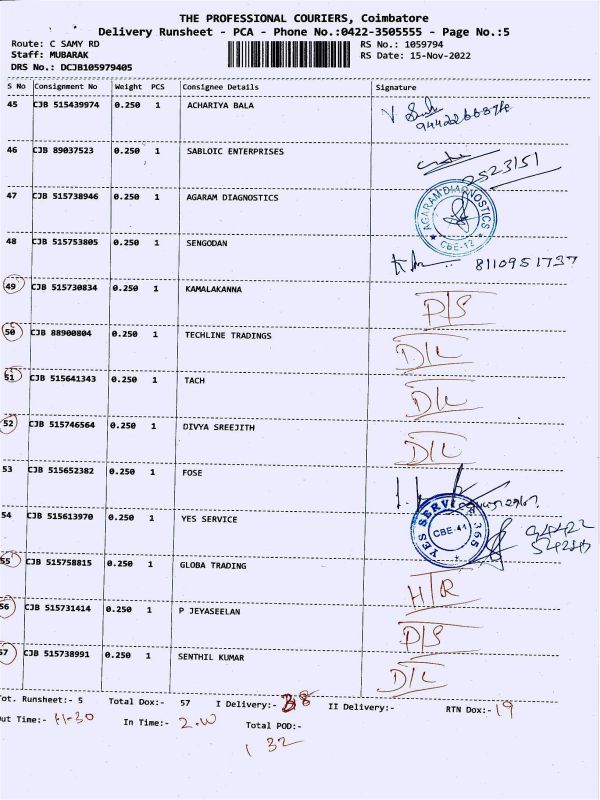 THE PROFESSIONAL COURIERS, Coimbatore
Delivery Runsheet - PCA - Phone No.:0422-3505555 - Page No.:5
Route: C SAMY RD RS No.: 1059794
Staff: MUBARAK RS Date: 15-Nov-2022
DRS No.: DCJB105979405
S No Consignment No Weight PCS Consignee Details Signature
45 CJB 515439974 0.250 1 ACHARIYA BALA
46 CJB 89037523 0.250 1 SABLOIC ENTERPRISES
2523151
47 CJB 515738946 0.250 1 AGARAM DIAGNOSTICS AGARAM DIAGNOSTICS
CBE-12
48 CJB 515753805 0.250 1 SENGODAN 8110951737
49 CJB 515730834 0.250 1 KAMALAKANNA P/S
50 CJB 88900804 0.250 1 TECHLINE TRADINGS D/L
51 CJB 515641343 0.250 1 TACH D/L
52 CJB 515746564 0.250 1 DIVYA SREEJITH D/L
53 CJB 515652382 0.250 1 FOSE
54 CJB 515613970 0.250 1 YES SERVICE YES SERVICE 365
CBE-41
55 CJB 515758815 0.250 1 GLOBA TRADING H/R
56 CJB 515731414 0.250 1 P JEYASEELAN P/S
57 CJB 515738991 0.250 1 SENTHIL KUMAR D/L
Tot. Runsheet:- 5 Total Dox:- 57 I Delivery:- 38 II Delivery:- RTN Dox:- 19
Out Time:- 11-30 In Time:- Total POD:-
32